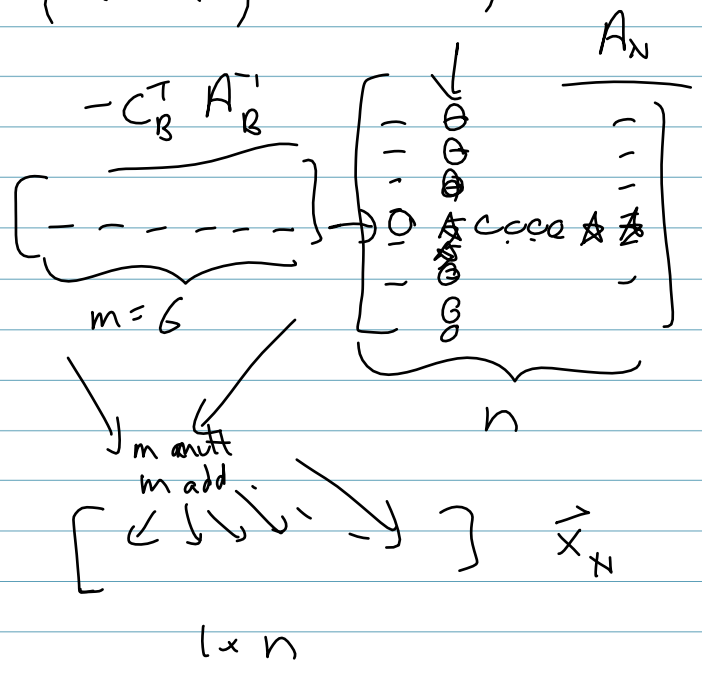 A_N
-C_B^T A_B^-1
m = 6
n
m mult
m add
x_N
1 × n